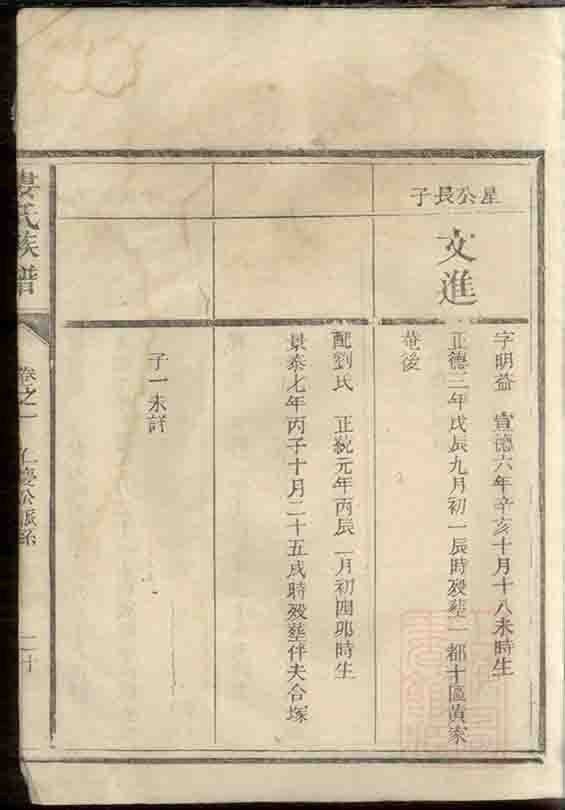 星公長子
文進
字明益 宣德六年辛亥十月十八未時生
正德三年戊辰九月初一辰時歿葬一都十區黃家
菴後
配劉氏 正統元年丙辰一月初四卯時生
景泰七年丙子十月二十五戌時歿葬伴夫合塚
子一未詳
婁氏族譜
卷之一
慶公派系
二十